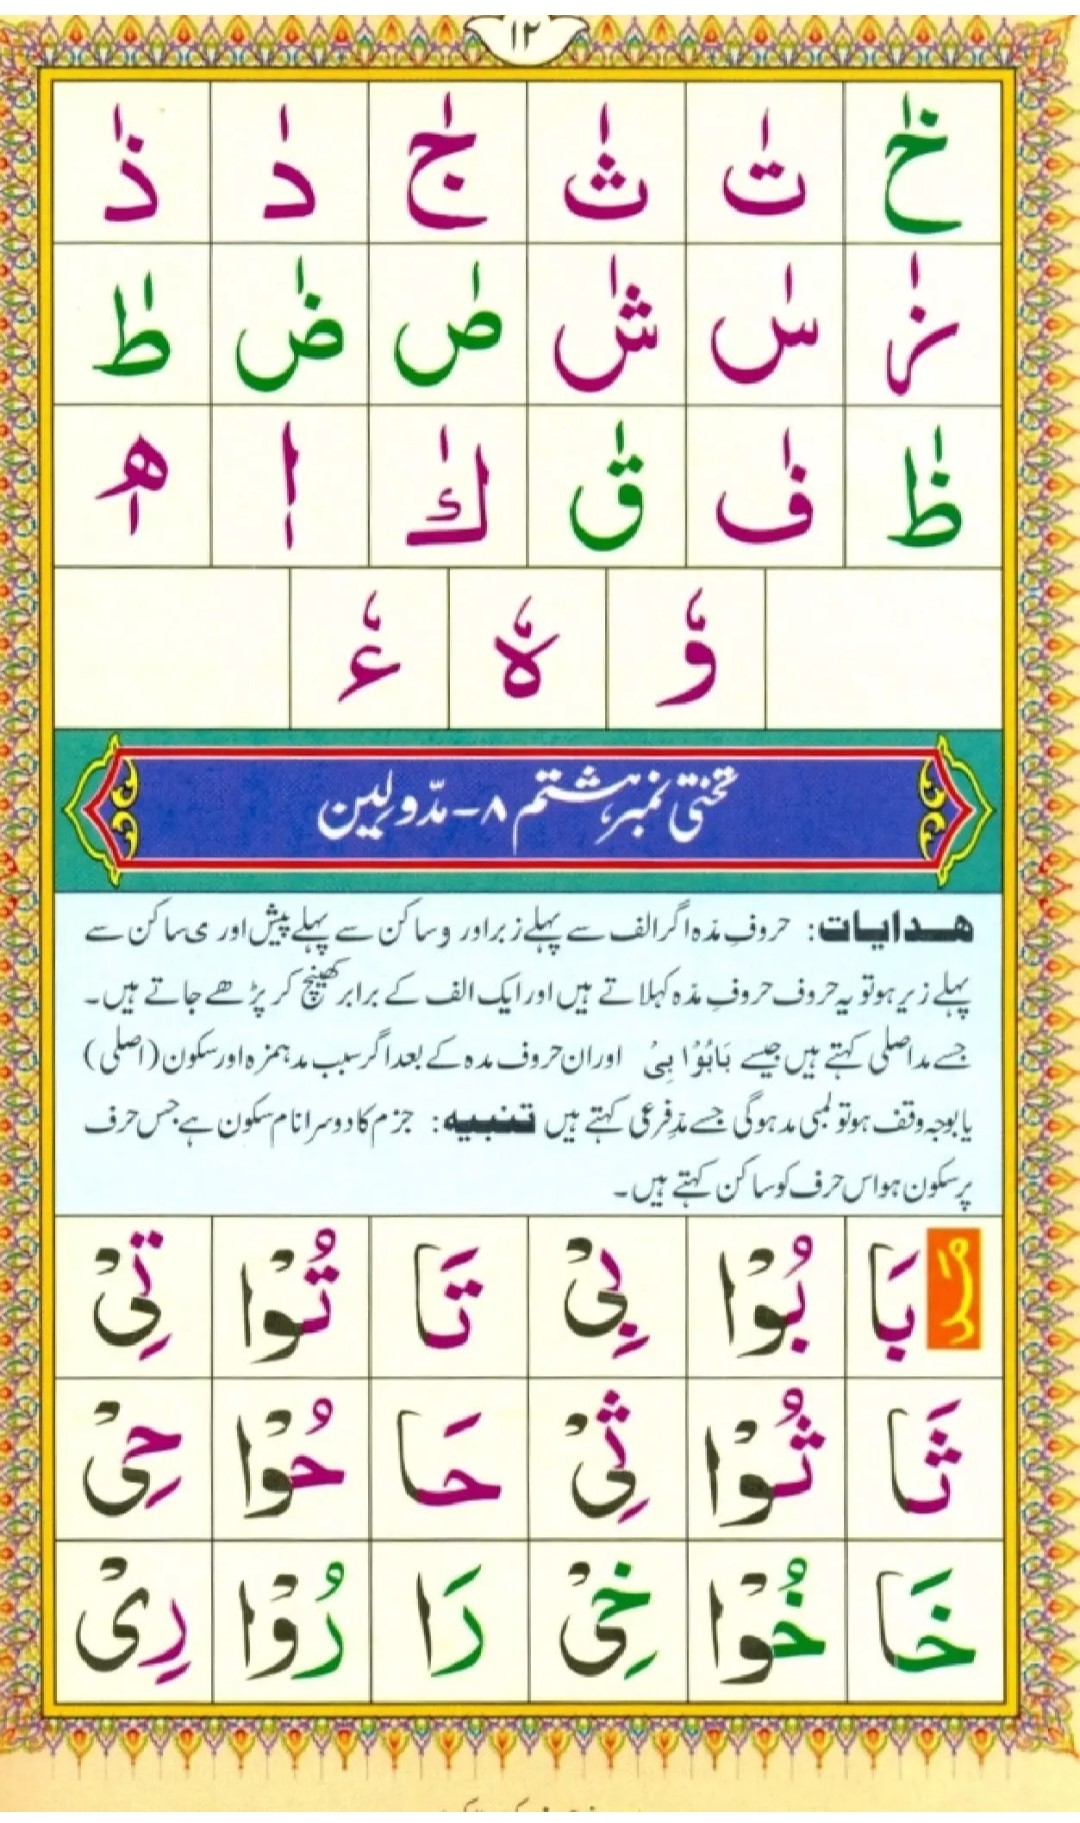 ١٢
خٰ تٰ ثٰ جٰ دٰ ذٰ
زٰ سٰ شٰ صٰ ضٰ طٰ
ظٰ فٰ قٰ كٰ اٖ هٖ
وٗ هٗ ءٗ
تختی نمبر ہشتم ۸ - مدّ و لین
ہدایات: حروفِ مدّہ اگر الف سے پہلے زبر اور و ساکن سے پہلے پیش اور ی ساکن سے
پہلے زیر ہو تو یہ حروف حروفِ مدّہ کہلاتے ہیں اور ایک الف کے برابر کھینچ کر پڑھے جاتے ہیں۔
جسے مد اصلی کہتے ہیں جیسے بَا بُوْا بِیْ اور ان حروف مدہ کے بعد اگر سبب مد ہمزہ اور سکون (اصلی)
یا بوجہ وقف ہو تو لمبی مد ہوگی جسے مدِّ فرعی کہتے ہیں تنبیہ: جزم کا دوسرا نام سکون ہے جس حرف
پر سکون ہو اس حرف کو ساکن کہتے ہیں۔
بَا بُوْا بِیْ تَا تُوْا تِیْ
ثَا ثُوْا ثِیْ حَا حُوْا حِیْ
خَا خُوْا خِیْ رَا رُوْا رِیْ